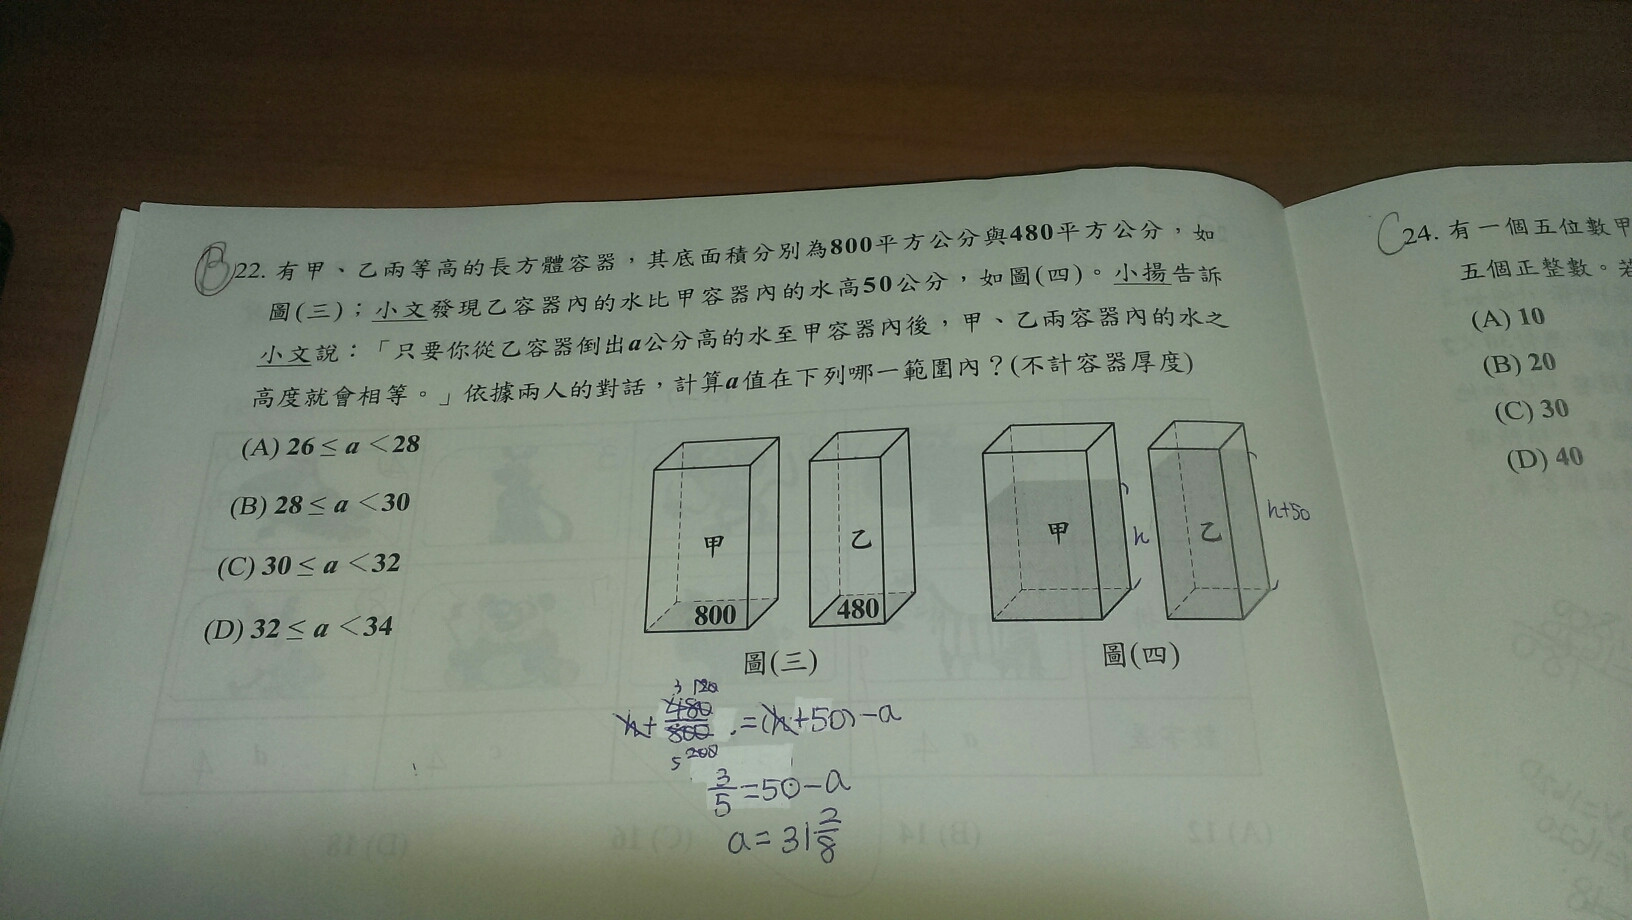 B 22. 有甲、乙兩等高的長方體容器，其底面積分別為800平方公分與480平方公分，如
圖(三)；小文發現乙容器內的水比甲容器內的水高50公分，如圖(四)。小揚告訴
小文說：「只要你從乙容器倒出a公分高的水至甲容器內後，甲、乙兩容器內的水之
高度就會相等。」依據兩人的對話，計算a值在下列哪一範圍內？(不計容器厚度)
(A) 26 ≤ a ＜28
(B) 28 ≤ a ＜30
(C) 30 ≤ a ＜32
(D) 32 ≤ a ＜34
甲
800
乙
480
圖(三)
甲
h
乙
h+50
圖(四)
3 120
h+480/800=(h+50)-a
5 200
3/5=50-a
a=31 2/8
C 24. 有一個五位數甲
五個正整數。若
(A) 10
(B) 20
(C) 30
(D) 40